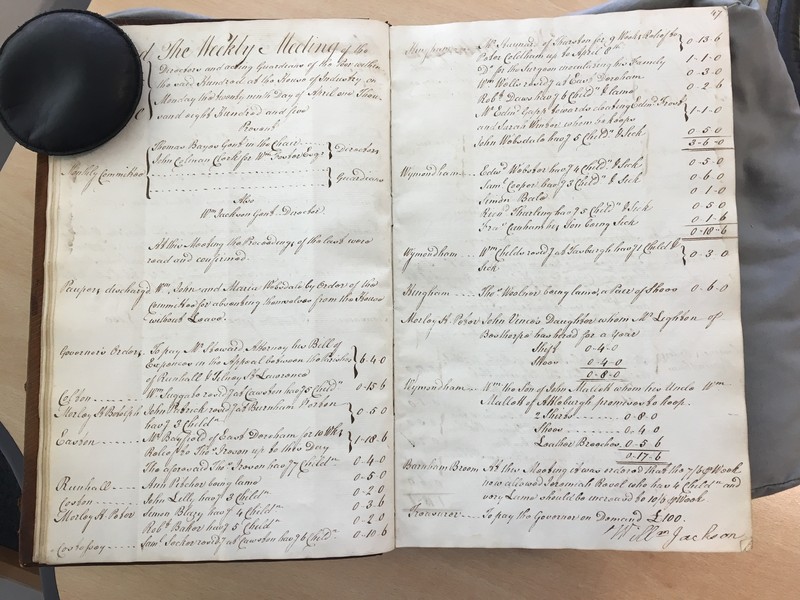 d The Weekly Meeting of the
Directors and acting Guardians of the Poor within
the said Hundred at the House of Industry on
Monday the twenty ninth Day of April one Thou-
sand eight Hundred and five
Present
Thomas Bayes Gent in the Chair
John Colman Clerk for Wm Foster Esqr } Directors
Weekly Committee
Guardians
Also
Wm Jackson Gent Director
At this Meeting the Proceedings of the last were
read and confirmed.
Paupers discharged Wm John and Maria Wobsdale by Order of the
Committee for absenting themselves from the House
without Leave.
Governor's Orders To pay Mr Steward Attorney his Bill of
Expences in the Appeal between the Parishes
of Runhall & Tilney St Lawrence 6-4-0
Coston Wm Suggate residg at Cawston havg 5 Childn 0-15-6
Morley St Botolph John residg at Burnham
havg 3 Childn 0-5-0
Easton Mr Bayfield of East Dereham for 10 Wks
Relief to Thos Ireson up to this Day 1-18-6
The aforesaid Thos Ireson havg 7 Childn 0-4-0
Runhall Ann Pitcher being lame 0-5-0
Coston John Lilly havg 3 Childn 0-2-0
Morley St Peter Simon Blazy havg 4 Childn 0-3-6
Robt Baker havg 5 Childn 0-2-0
Costessey Saml Secker residg at Cawston havg 6 Childn 0-10-6
47
Hingham Mr Stannard of Thurston for 9 Weeks Relief to
Peter Coltham up to April 6th 0-13-6
Do for the Surgeon inoculating his Family 1-1-0
Wm Wells residg at East Dereham 0-3-0
Robt Daws havg 6 Childn & lame 0-2-6
Mr Edwd Gapp towards cloathing Edwd Frost
and Sarah Winter whom he keeps 1-1-0
John Wobsdale havg 5 Childn & Sick 0-5-0
3-6-0
Wymondham Edwd Webster havg 4 Childn & Sick 0-5-0
Saml Cooper havg 5 Childn & Sick 0-6-0
Simon Beales 0-1-0
Richd Thurling havg 5 Childn & Sick 0-5-0
Fras his Son being Sick 0-1-6
0-18-6
Wymondham Wm Childs residg at Tasburgh havg 1 Child &
Sick 0-3-0
Hingham Thos Woolner being lame, a Pair of Shoes 0-6-0
Morley St Peter John Vince's Daughter whom Mr Leghton of
Bowthorpe has hired for a Year
Shift 0-4-0
Shoes 0-4-0
0-8-0
Wymondham Wm the Son of John Mallett whom his Uncle Wm
Mallett of Attleburgh promises to keep.
2 Shirts 0-8-0
Shoes 0-4-0
Leather Breeches 0-5-6
0-17-6
Barnham Broom At this Meeting it was ordered that the 7/5 Pr Week
now allowed Jeremiah Revel who has 4 Childn and
very Lame should be increased to 10/3 Pr Week
Treasurer To pay the Governor on Demand £100.
Willm Jackson